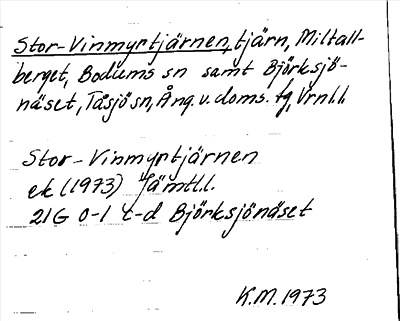 Stor-Vinmyrtjärnen, tjärn, Miltall-
berget, Bodums sn samt Björksjö-
näset, Tåsjö sn, Ång. v. doms. tg, Vrnl.l.
Stor-Vinmyrtjärnen
ek (1973) Jämtl.l.
21G 0-1 c-d Björksjönäset
K.M. 1973